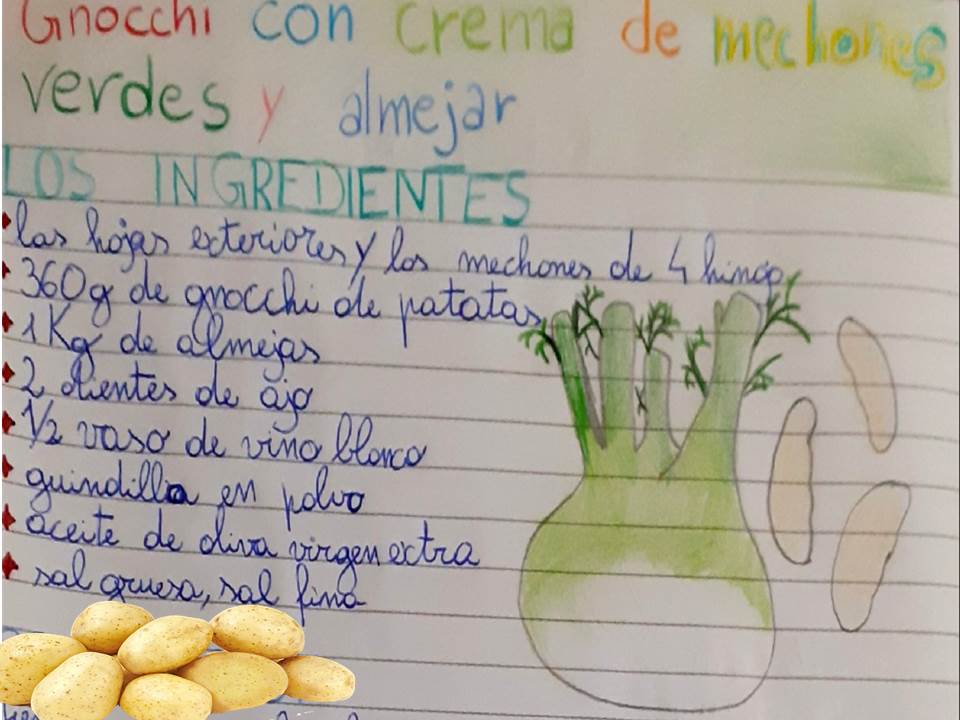 Gnocchi con crema de mechones
verdes y almejar
LOS INGREDIENTES
las hojas exteriores y los mechones de 4 hinojo
360g de gnocchi de patatas
1Kg de almejas
2 dientes de ajo
1/2 vaso de vino blanco
guindilla en polvo
aceite de oliva virgen extra
sal gruesa, sal fina